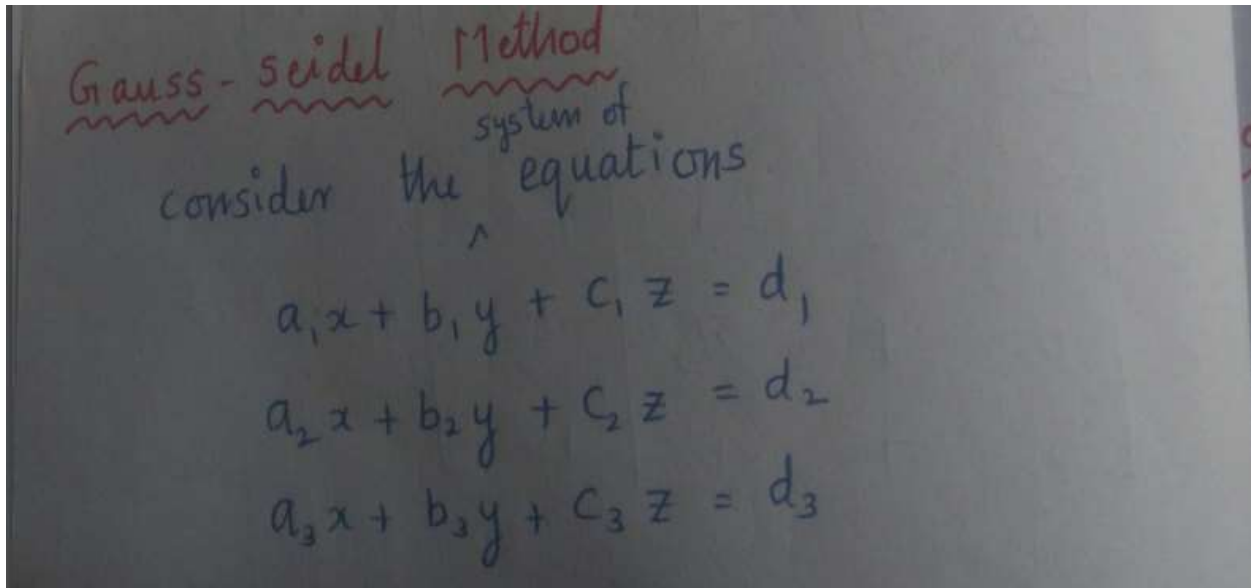 Gauss - seidel Method
consider the system of equations
a₁x + b₁y + c₁z = d₁
a₂x + b₂y + c₂z = d₂
a₃x + b₃y + c₃z = d₃